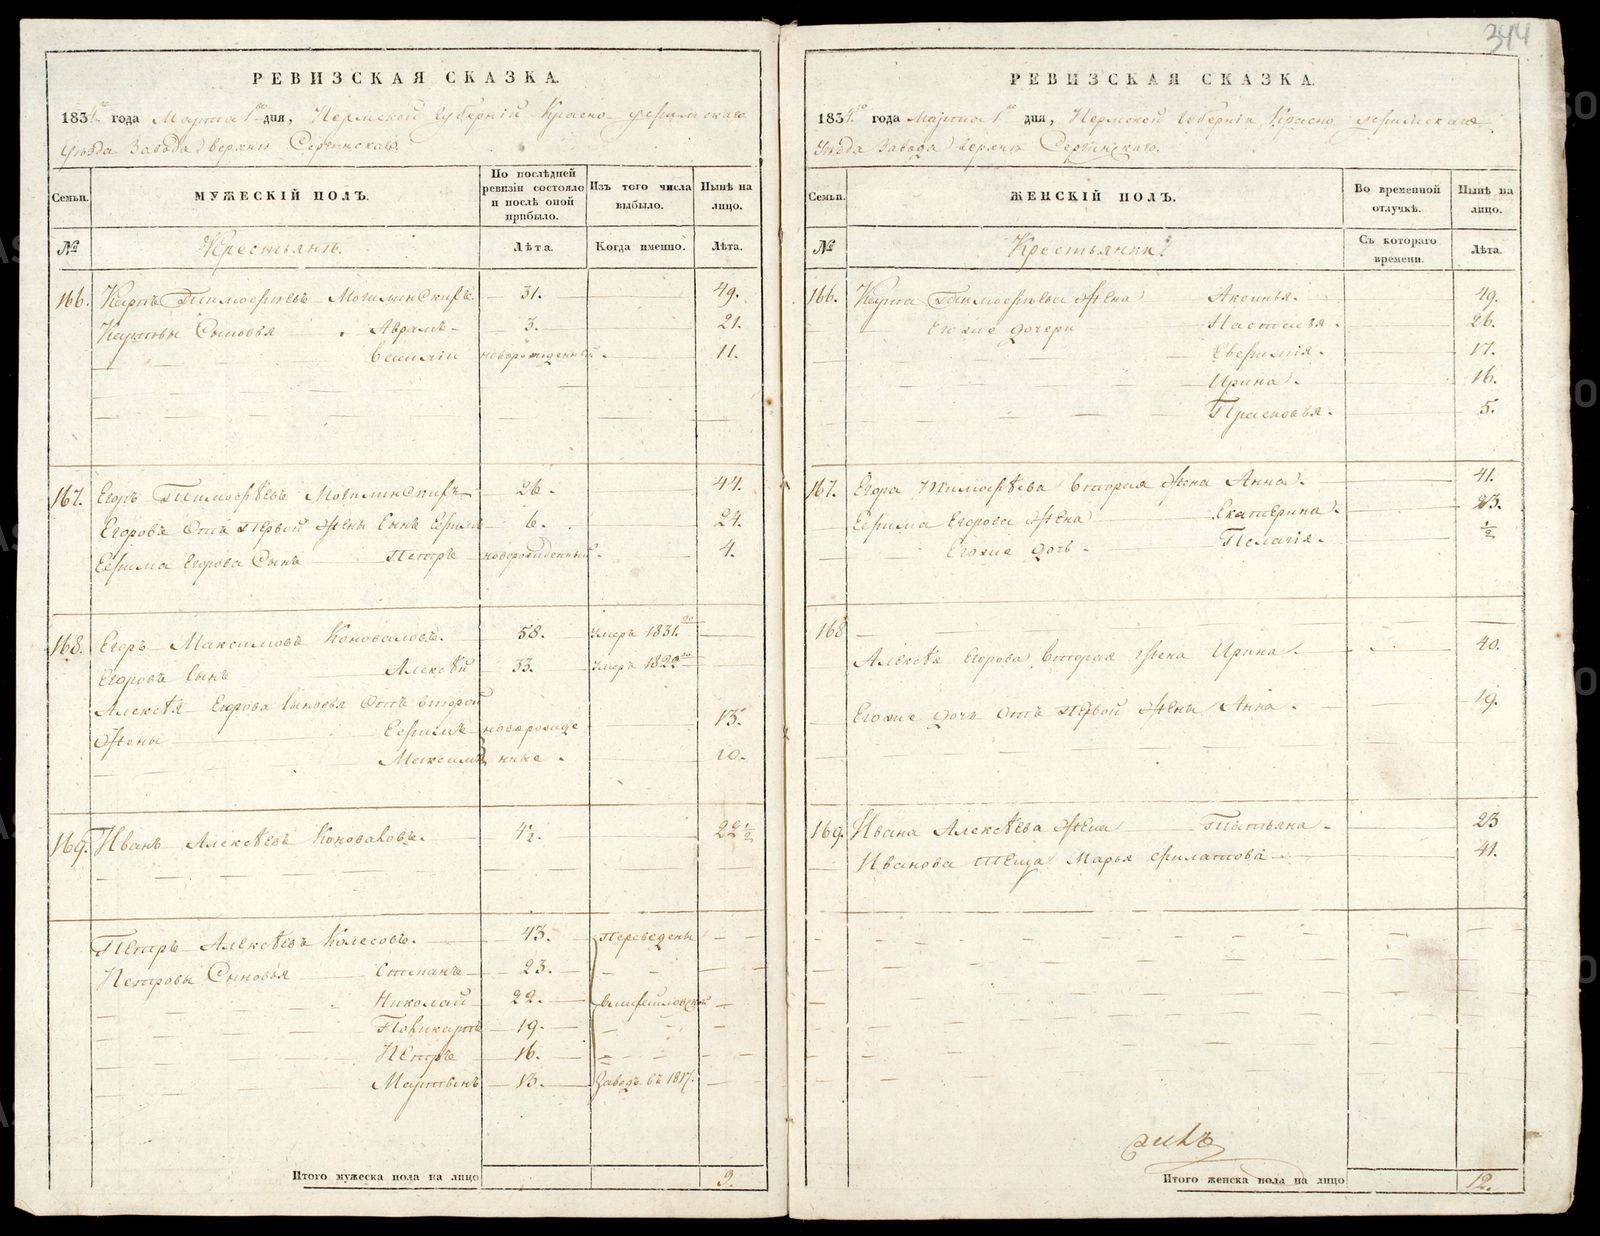 344
РЕВИЗСКАЯ СКАЗКА.
1834го года Марта 1го дня, Пермской Губернiи Красно-уфимскаго
Уѣзда Завода верхне Сергинскаго.
Семьи.
МУЖЕСКІЙ ПОЛЪ.
По послѣдней
ревизіи состояло
и послѣ оной
прибыло.
Изъ того числа
выбыло.
Нынѣ на
лицо.
№
Крестьянъ.
Лѣта.
Когда именно.
Лѣта.
166. Карпъ Тимофѣевъ Могилинскихъ 31. 49.
Карповы Сыновья Аврамъ 3. 21.
Василiи новорожденный. 11.
167. Егоръ Тимофѣевъ Могилинскихъ 26. 44.
Егоровъ Отъ первой жены Сынъ Ефимъ 6. 24.
Ефима Егорова Сынъ Петръ новорожденный. 4.
168. Егоръ Максимовъ Коноваловъ. 58. умеръ 1831.го
Егоровъ Сынъ Алексѣй 33. умеръ
Алексѣя Егорова Сыновья Отъ второй
Жены Ефимъ новорожде 13.
Максимъ нные. 10.
169. Иванъ Алексѣевъ Коноваловъ. 4½. 22½
Петръ Алексѣевъ Колесовъ. 43. Переведены
Петровы Сыновья Степанъ 23.
Николай 22.
Поликарпъ 19.
Петръ 16.
Мартынъ 13. Заводъ въ
Итого мужеска пола на лицо 9.
РЕВИЗСКАЯ СКАЗКА.
1834.го года Марта 1го дня, Пермской Губернiи Красно уфимскаго
Уѣзда Завода верхне Сергинскаго.
Семьи.
ЖЕНСКІЙ ПОЛЪ.
Во временной
отлучкѣ.
Нынѣ на
лицо.
№
Крестьянки.
Съ котораго
времени.
Лѣта.
166. Карпа Тимофѣева жена Аксинья. 49.
Егоже дочери Настасья. 26.
Евфимiя. 17.
Ирина. 16.
Прасковья. 5.
167. Егора Тимофѣева вторая жена Анна. 41.
Ефима Егорова жена Екатерина. 23.
Егоже дочь. Пелагiя. ½
168
Алексѣя Егорова вторая жена Ирина. 40.
Егоже дочь отъ первой жены Анна. 19.
169. Ивана Алексѣева жена Татьяна. 23
Иванова теща Марья Филатова 41.
Итого женска пола на лицо 12.